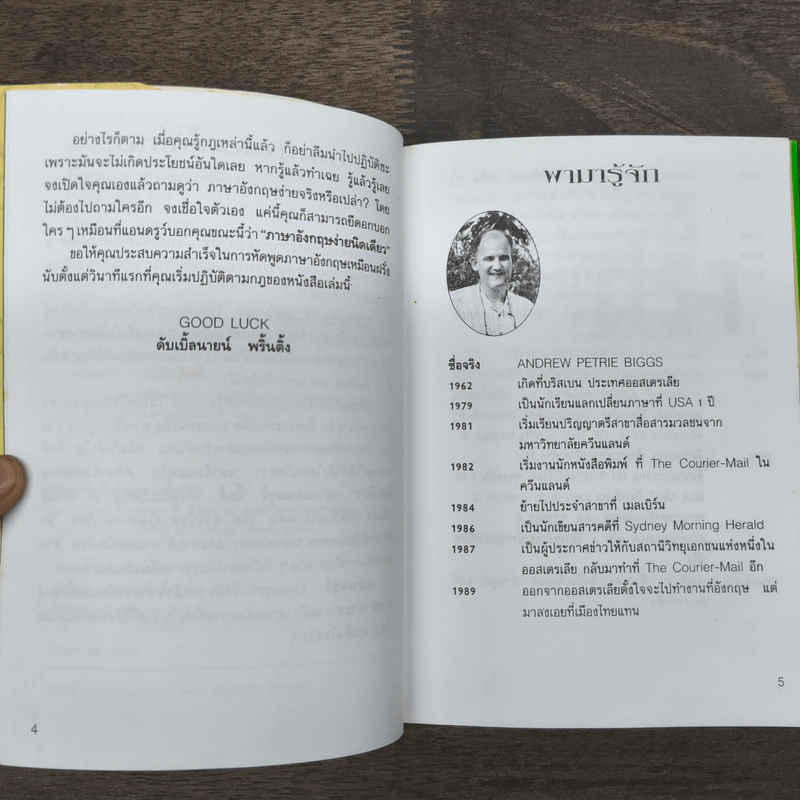 อย่างไรก็ตาม เมื่อคุณรู้กฎเหล่านี้แล้ว ก็อย่าลืมนำไปปฏิบัติซะ
เพราะมันจะไม่เกิดประโยชน์อันใดเลย หากรู้แล้วทำเฉย รู้แล้วรู้เลย
จงเปิดใจคุณเองแล้วถามดูว่า ภาษาอังกฤษง่ายจริงหรือเปล่า? โดย
ไม่ต้องไปถามใครอีก จงเชื่อใจตัวเอง แค่นี้คุณก็สามารถยืดอกบอก
ใครๆ เหมือนที่แอนดรูว์บอกคุณขณะนี้ว่า "ภาษาอังกฤษง่ายนิดเดียว"
ขอให้คุณประสบความสำเร็จในการหัดพูดภาษาอังกฤษเหมือนฝรั่ง
นับตั้งแต่วินาทีแรกที่คุณเริ่มปฏิบัติตามกฎของหนังสือเล่มนี้
GOOD LUCK
ดับเบิ้ลนายน์ พริ้นติ้ง
4
พามารู้จัก
ชื่อจริง ANDREW PETRIE BIGGS
1962 เกิดที่บริสเบน ประเทศออสเตรเลีย
1979 เป็นนักเรียนแลกเปลี่ยนภาษาที่ USA 1 ปี
1981 เริ่มเรียนปริญญาตรีสาขาสื่อสารมวลชนจาก
มหาวิทยาลัยควีนแลนด์
1982 เริ่มงานนักหนังสือพิมพ์ ที่ The Courier-Mail ใน
ควีนแลนด์
1984 ย้ายไปประจำสาขาที่ เมลเบิร์น
1986 เป็นนักเขียนสารคดีที่ Sydney Morning Herald
1987 เป็นผู้ประกาศข่าวให้กับสถานีวิทยุเอกชนแห่งหนึ่งใน
ออสเตรเลีย กลับมาทำที่ The Courier-Mail อีก
1989 ออกจากออสเตรเลียตั้งใจจะไปทำงานที่อังกฤษ แต่
มาลงเอยที่เมืองไทยแทน
5